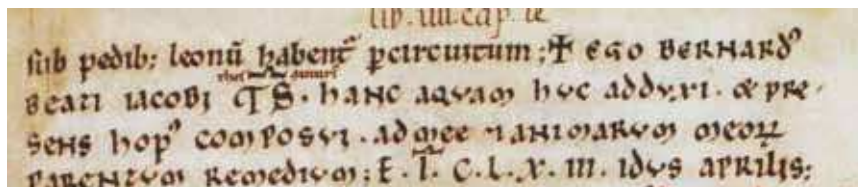 lib. iiii. cap. ix
sub pedib; leonū habent᷑ p̲circuitum; ✝ EGO BERNARD⁹
BEATI IACOBI T̅S̅. hANC AQVAM hVC ADDVXI. & PRE-
SENS hOP⁹ COMPOSVI. AD MEE ⁊ ANIMARVM MEOꝝ
PARENTVM REMEDIVM; E. I̅. C. L. X. III. IDVS APRILIS;